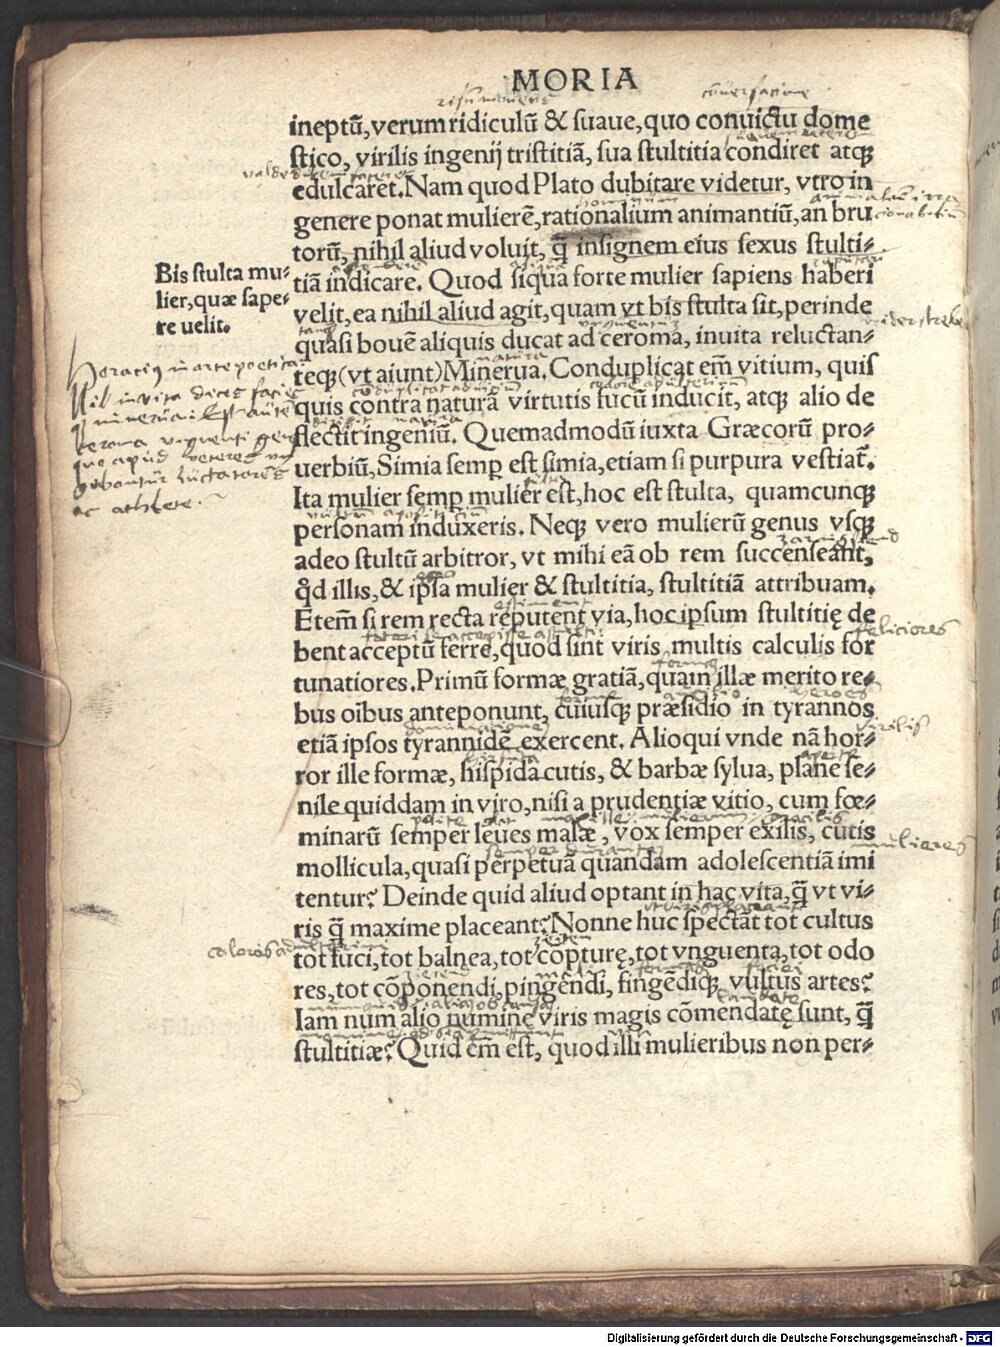 MORIA
ineptũ, verum ridiculũ & suaue, quo conuictu dome
stico, virilis ingenij tristitiã, sua stultitia condiret atqꝫ
edulcaret. Nam quod Plato dubitare videtur, vtro in
genere ponat mulierẽ, rationalium animantiũ, an bru
torũ, nihil aliud voluit, q̃ insignem eius sexus stulti-
tiã indicare. Quod siqua forte mulier sapiens haberi
velit, ea nihil aliud agit, quam vt bis stulta sit, perinde
quasi bouẽ aliquis ducat ad ceroma, inuita reluctan-
teqꝫ (vt aiunt) Minerua. Conduplicat em̃ vitium, quis
quis contra naturã virtutis fucũ inducit, atqꝫ alio de
flectit ingeniũ. Quemadmodũ iuxta Græcorũ pro-
uerbiũ, Simia semꝑ est simia, etiam si purpura vestiat̃.
Ita mulier semꝑ mulier est, hoc est stulta, quamcunqꝫ
personam induxeris. Neqꝫ vero mulierũ genus vsqꝫ
adeo stultũ arbitror, vt mihi eã ob rem succenseant,
q̊d illis, & ipsa mulier & stultitia, stultitiã attribuam.
Etem̃ si rem recta reputent via, hoc ipsum stultitię de
bent acceptũ ferre, quod sint viris multis calculis for
tunatiores. Primũ formæ gratiã, quam illæ merito re-
bus oĩbus anteponunt, cuiusqꝫ præsidio in tyrannos
etiã ipsos tyrannidẽ exercent. Alioqui vnde nã hor-
ror ille formæ, hispida cutis, & barbæ sylua, plane se-
nile quiddam in viro, nisi a prudentiæ vitio, cum fœ-
minarũ semper leues malæ, vox semper exilis, cutis
mollicula, quasi perpetuã quandam adolescentiã imi
tentur? Deinde quid aliud optant in hac vita, q̃ vt vi-
ris q̃ maxime placeant? Nonne huc spectãt tot cultus
tot fuci, tot balnea, tot cõpturę, tot vnguenta, tot odo
res, tot cõponendi, pingendi, fingẽdiqꝫ vultus artes?
Iam num alio nomine viris magis cõmendatę sunt, q̃
stultitiæ? Quid em̃ est, quod illi mulieribus non per-
Bis stulta mu-
lier, quæ sape-
re uelit.
Horacius in arte poetica
Nil invita dices facies
q̃ minerua
ceroma
apud veteres
luctatores
ac athlete.
feliciores
virilis
mulieres